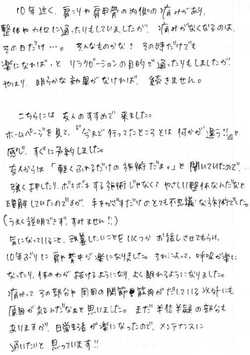 10年近く、肩こりや肩甲骨の内側の痛みがあり、
整体やカイロに通ったりもしていましたが、痛みがなくなるのは、
その日だけ…。そんなものかな！その時だけでも
楽になれば、とリラクゼーションの目的で通ったりもしましたが
やはり 明らかな効果がなければ 続きません。
こちらには 友人のすすめで 来ました。
ホームページを見て、「今まで行ってたところとは何かが違う!!」と
感じ、すぐに予約しました。
友人からは「軽くふれるだけの施術だよ。」と聞いていたので、
強く押したり、ボキボキする施術じゃなく やさしい整体なんだなと
理解していたのですが、手をかざすだけのとても不思議な施術でした。
(うまく説明できず、すみません!!)
気になっていること、改善したいことを 1つ1つ お話しさせてもらい、
10年ぶりに 肩や背中が楽になりました。それによって、呼吸が楽に
なったり、体の力が抜けるようになり、よく眠れるようになりました。
痛みって その部分や 周囲の関節や筋肉がだしている以外にも
原因があるんだなぁと思いました。まだ 半信半疑の部分も
ありますが、日常生活が楽になったので、メンテナンスに
通いたいと思っています!!